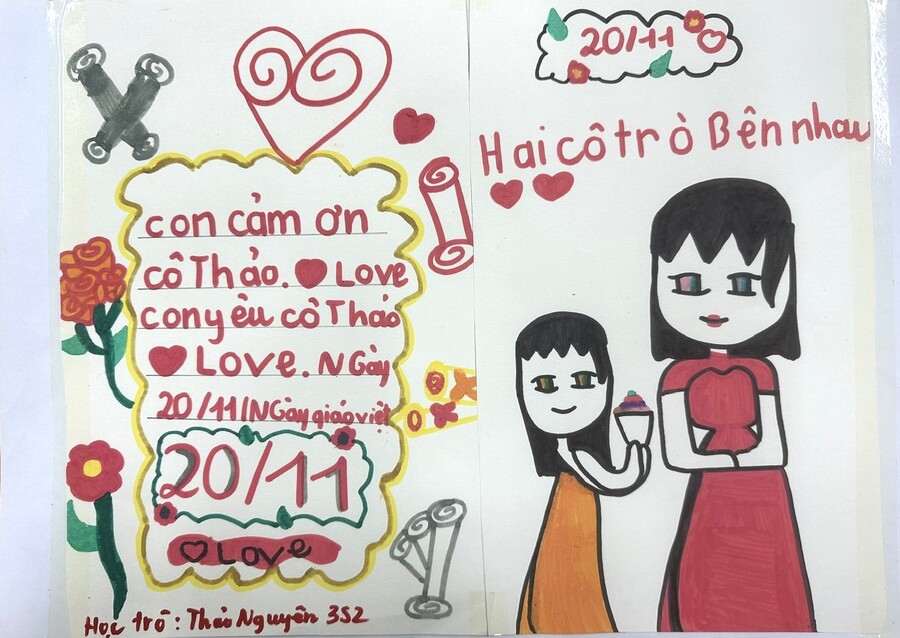 con cảm ơn
cô Thảo. Love
con yèu cô Thảo
Love. NGày
20/11/NGày giáo việt
20/11
Love
Học trô : Thảo Nguyên 3S2
20/11
Hai cô trò Bên nhau